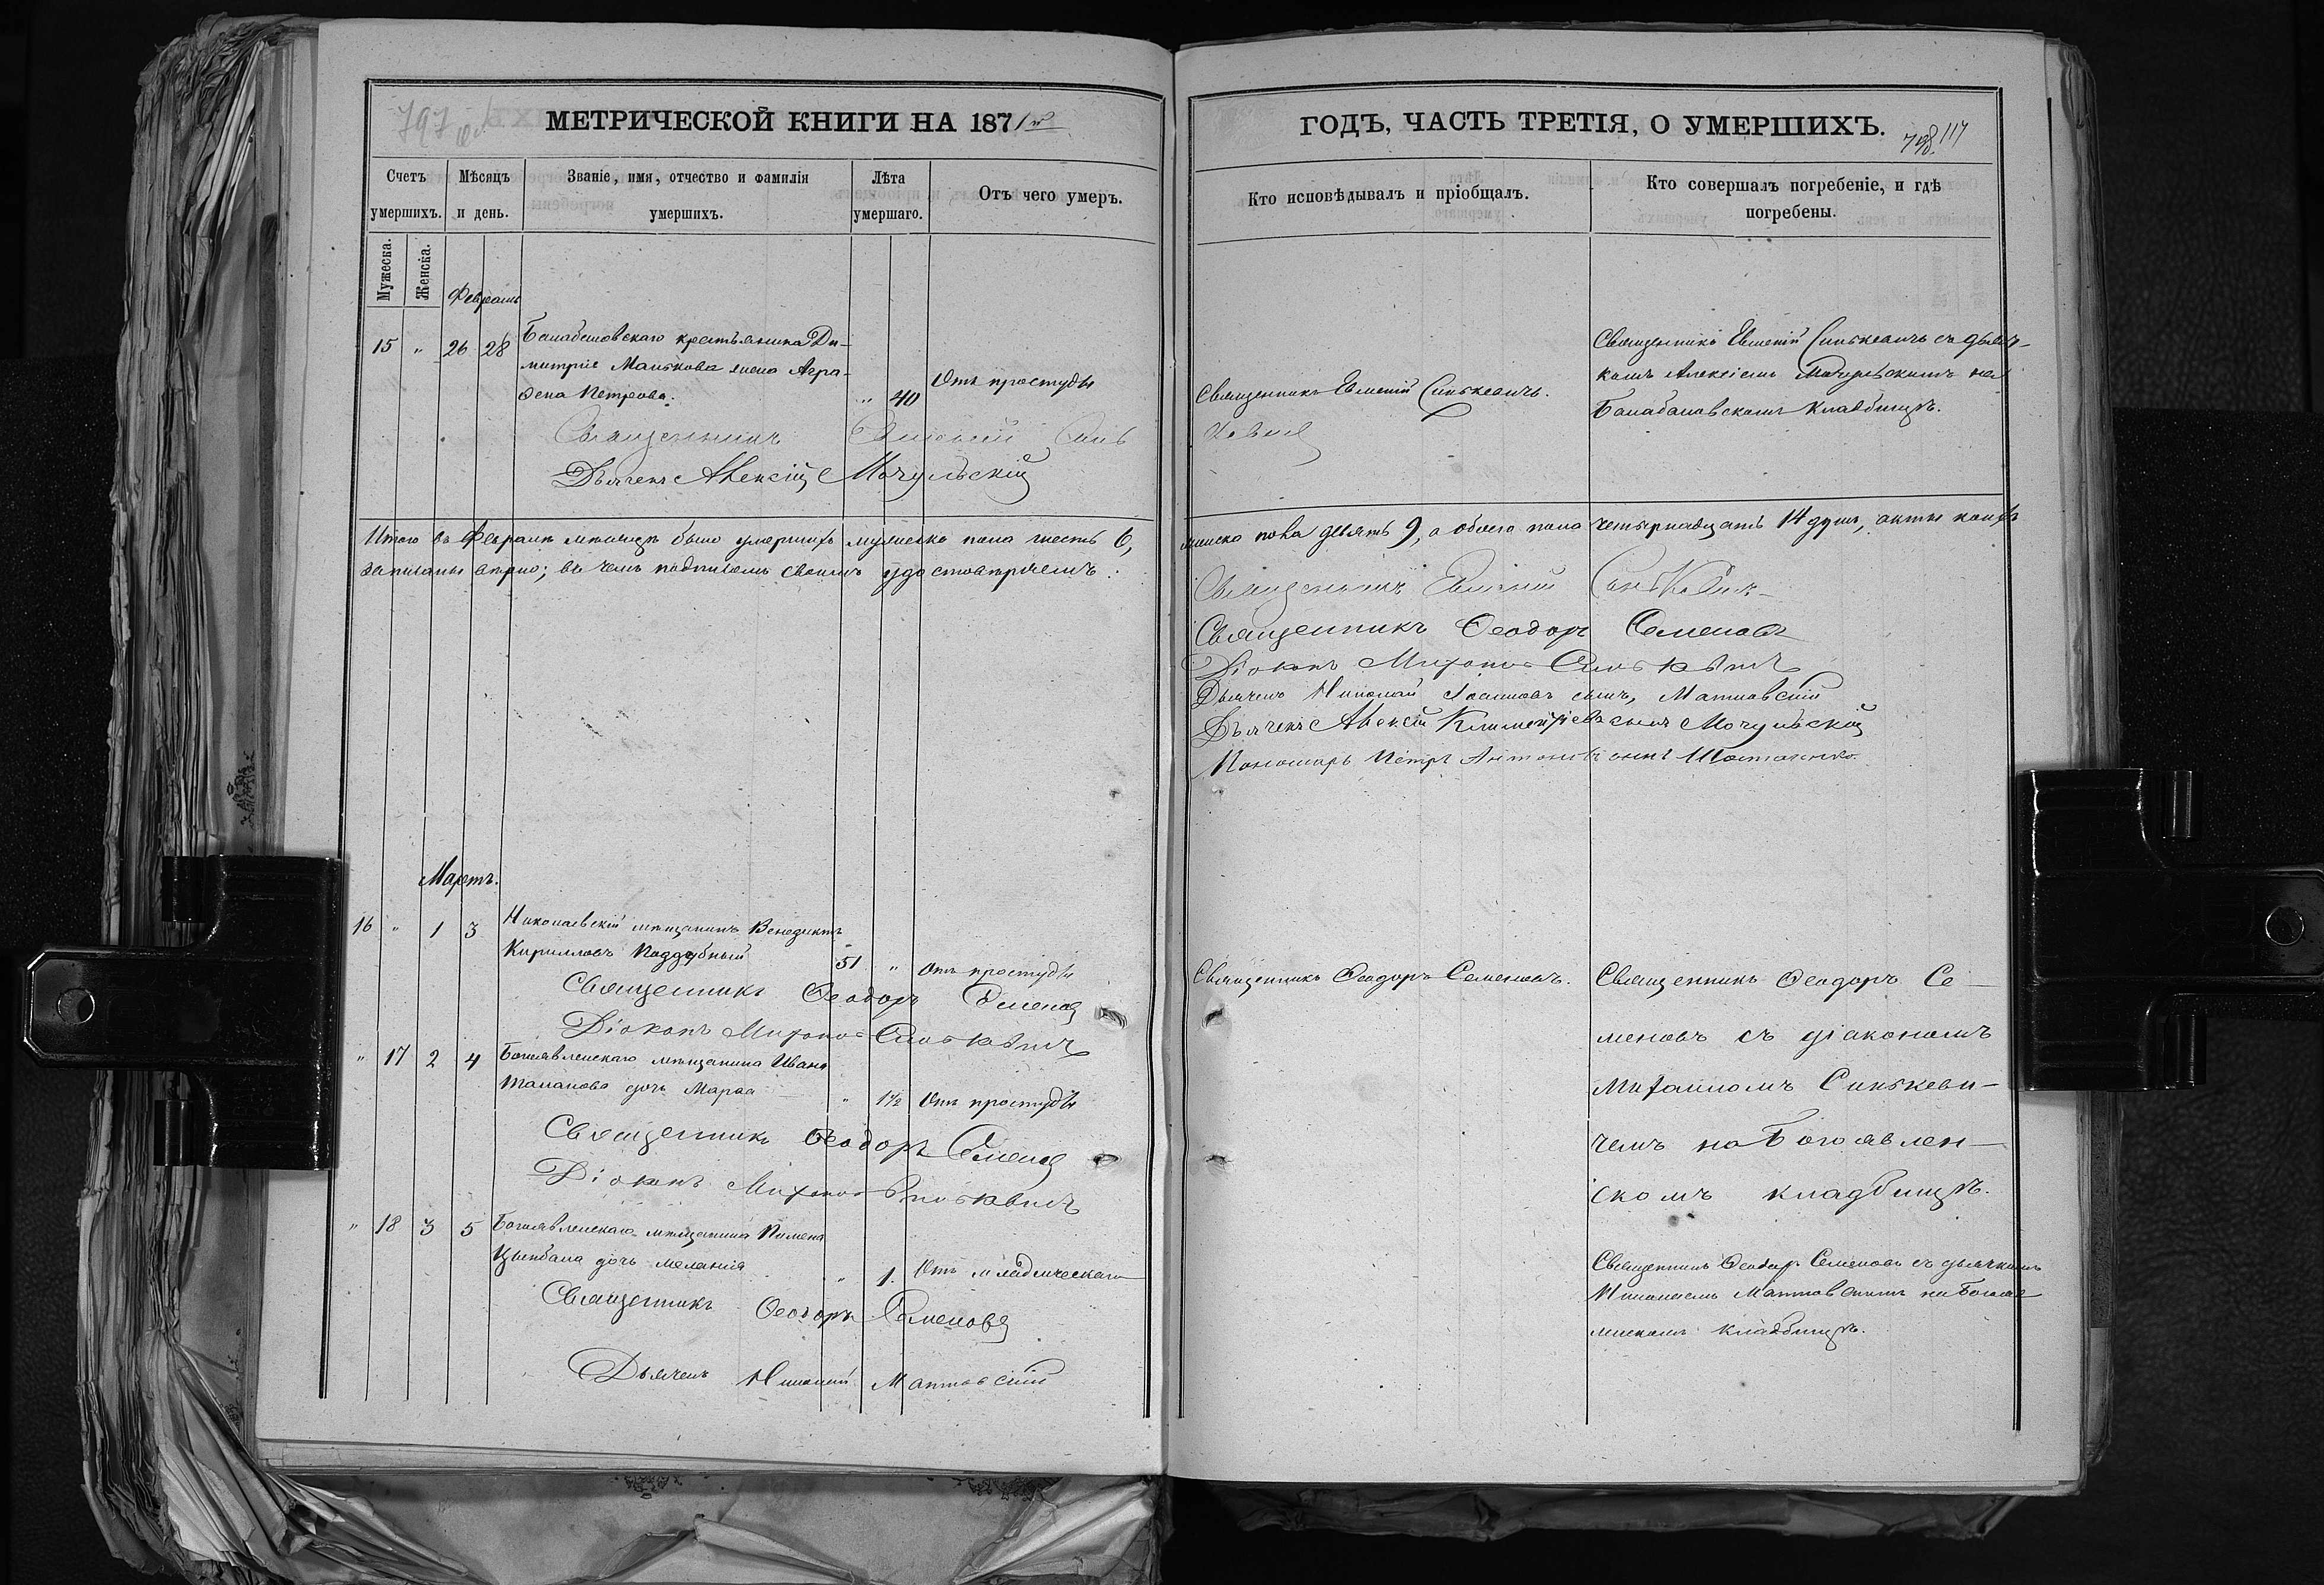 797
МЕТРИЧЕСКОЙ КНИГИ НА 1871й
Счетъ умершихъ.
Мѣсяцъ и день.
Званіе, имя, отчество и фамилія умершихъ.
Лѣта умершаго.
Отъ чего умеръ.
Мужеска.
Женска.
Февраль
15 " 26 28 Балабановскаго крестьянина Ди-
митрія Манькова жена Агра-
фена Петрова. " 40 Отъ простуды
Священникъ Евгеній Синь
Дьячекъ Алексій Мочульскій
Итого въ Февралѣ мѣсяцѣ было умершихъ мужеска пола шесть 6,
записаны вѣрно; въ чемъ подписомъ своимъ удостовѣряемъ:
Мартъ.
16 " 1 3 Николаевскій мѣщанинъ Венедиктъ
Кирилловъ Поддубный 51 " Отъ простуды
Священникъ Ѳеодоръ Семеновъ
Діаконъ Синькевичъ
" 17 2 4 Богоявленскаго мѣщанина Ивана
дочь Марѳа " 1½ Отъ простуды
Священникъ Ѳеодоръ Семеновъ
Діаконъ Синькевичъ
" 18 3 5 Богоявленскаго мѣщанина Пимена
Цымбала дочь Меланія " 1. Отъ младенческаго
Священникъ Ѳеодоръ Семеновъ
Дьячекъ Николай
ГОДЪ, ЧАСТЬ ТРЕТІЯ, О УМЕРШИХЪ.
798. 117
Кто исповѣдывалъ и пріобщалъ.
Кто совершалъ погребеніе, и гдѣ погребены.
Священникъ Евгеній Синькевичъ.
кевичъ
Священникъ Евгеній Синькевичъ съ дьяч-
комъ Алексіемъ Мочульскимъ на
Балабановскомъ кладбищѣ.
женска пола девять 9, а обоего пола четырнадцать 14 душъ, акты коихъ
Священникъ Евгеній Синькевич
Священникъ Ѳеодоръ Семеновъ
Діаконъ Синькевичъ
Дьячекъ Николай Іоанновъ сынъ,
Дьячекъ Алексій Климентіевъ сынъ Мочульскій
Пономарь Петръ Антоновъ сынъ
Священникъ Ѳеодоръ Семеновъ.
Священникъ Ѳеодоръ Се-
меновъ съ діакономъ
Синькеви-
чемъ на Богоявлен-
скомъ кладбищѣ.
Священникъ Ѳеодоръ Семеновъ съ дьячкомъ
Николаемъ на Богояв
ленскомъ кладбищѣ.